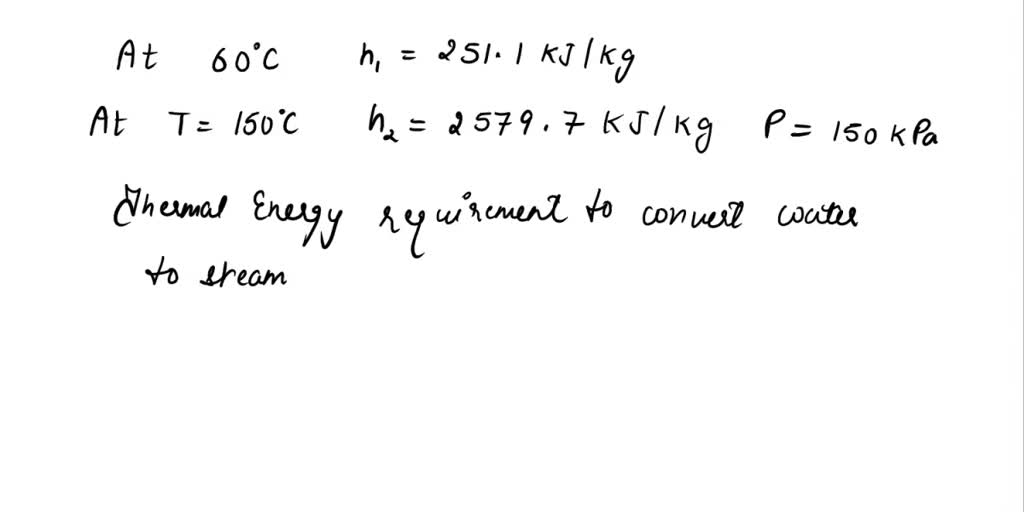 At 60°C h₁ = 251.1 KJ/kg
At T = 150°C h₂ = 2579.7 KJ/kg P = 150 kPa
Thermal Energy requirement to convert water
to steam